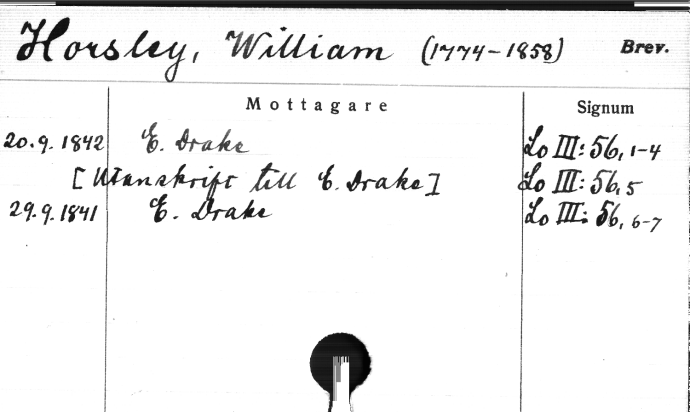 Horsley, William (1774-1858) Brev.
Mottagare Signum
20.9.1842 E. Drake Lo III: 56, 1-4
[Utanskrift till E. Drake] Lo III: 56, 5
29.9.1841 E. Drake Lo III: 56, 6-7